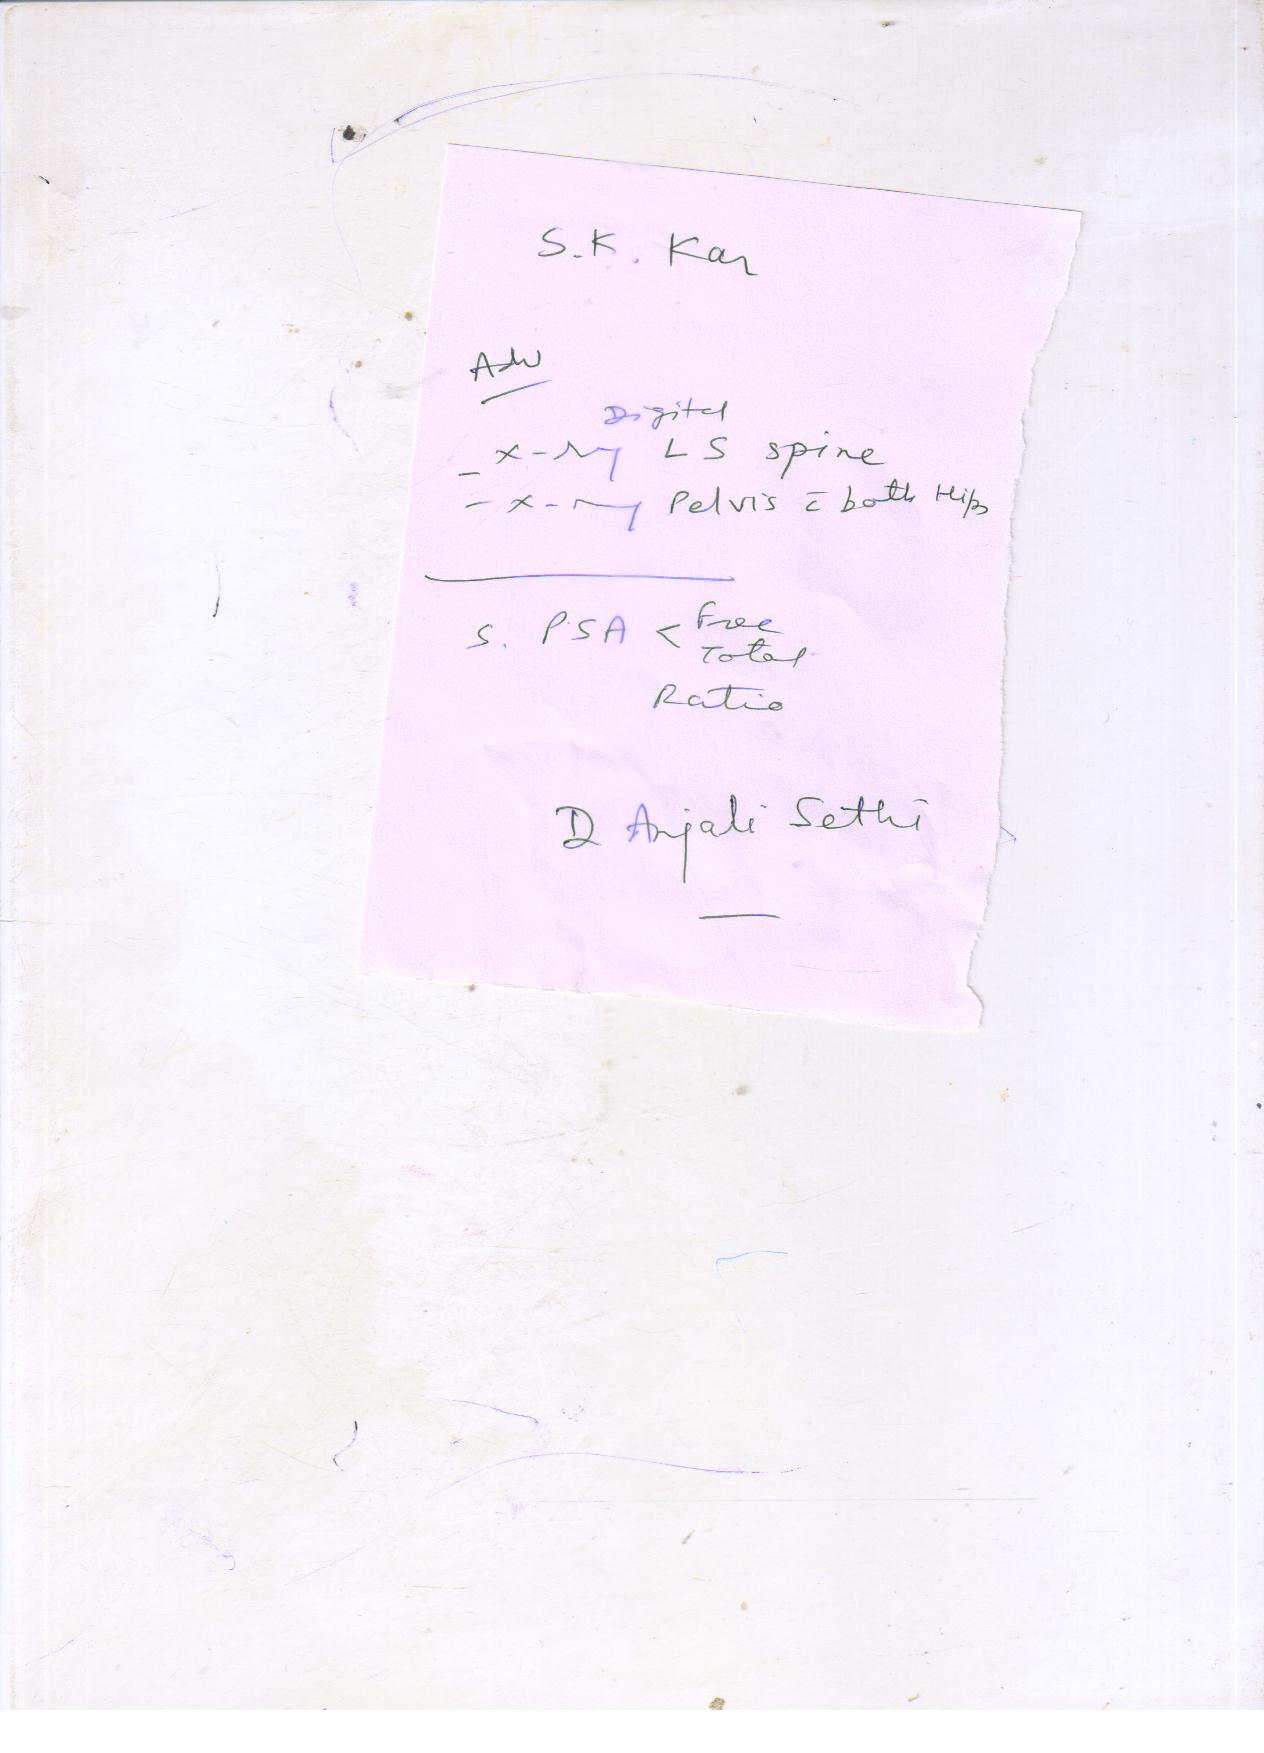 S.K. Kar
Adv
Digital
- x-ray LS spine
- x-ray Pelvis c̄ both Hips
S. PSA < Free
Total
Ratio
D Anjali Sethi